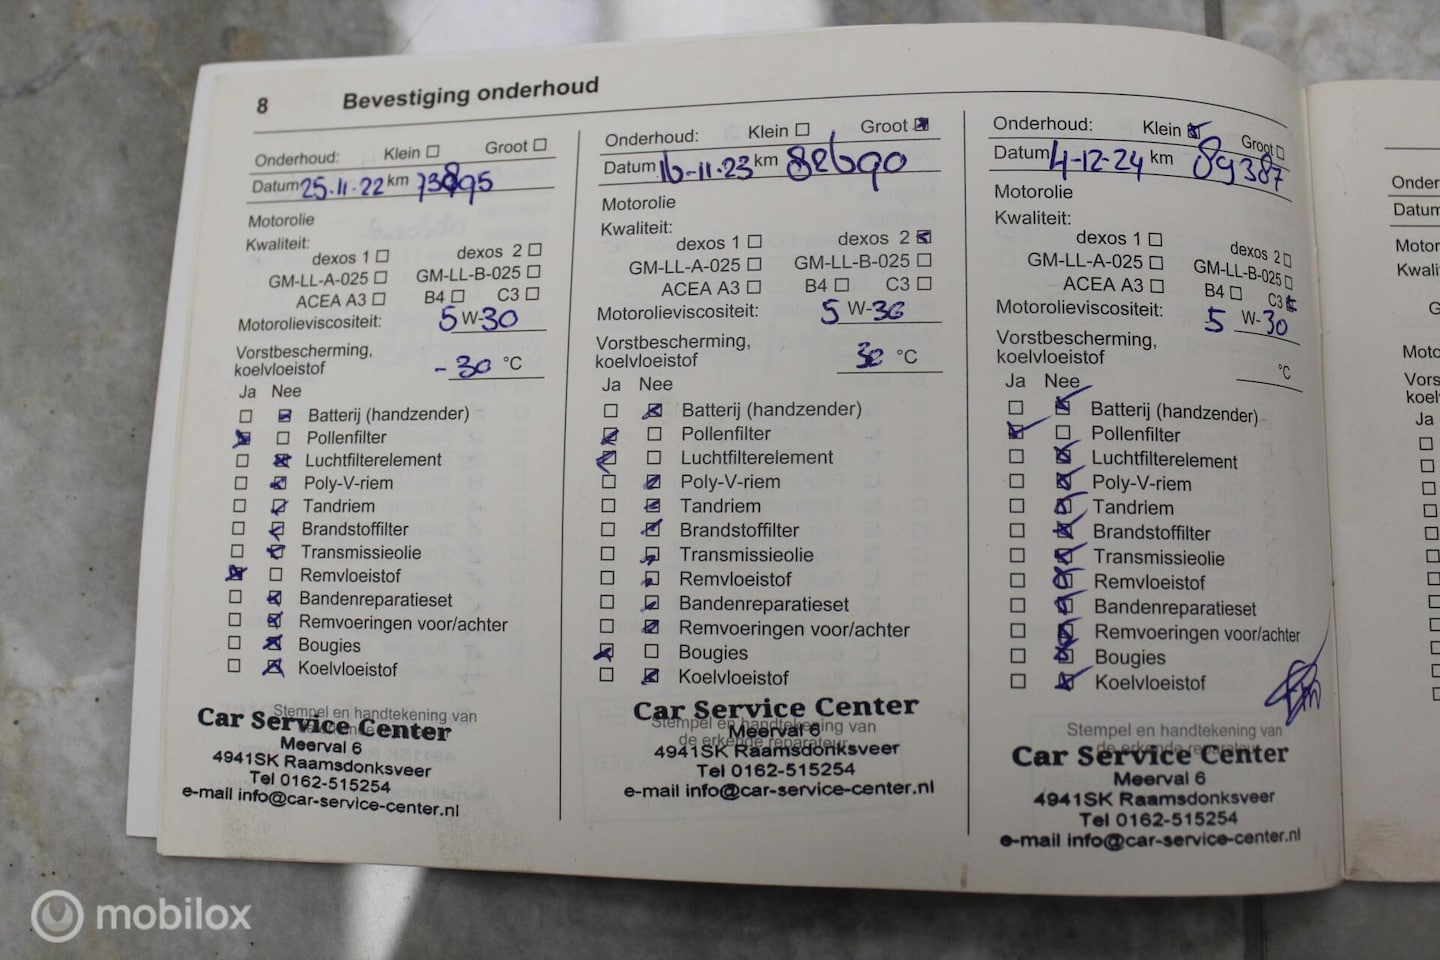 8 Bevestiging onderhoud
Onderhoud: Klein Groot
Datum 25-11-22 km 73895
Motorolie
Kwaliteit:
dexos 1 dexos 2
GM-LL-A-025 GM-LL-B-025
ACEA A3 B4 C3
Motorolieviscositeit: 5 W-30
Vorstbescherming,
koelvloeistof -30 °C
Ja Nee
Batterij (handzender)
Pollenfilter
Luchtfilterelement
Poly-V-riem
Tandriem
Brandstoffilter
Transmissieolie
Remvloeistof
Bandenreparatieset
Remvoeringen voor/achter
Bougies
Koelvloeistof
Stempel en handtekening van
Car Service Center
Meerval 6
4941SK Raamsdonksveer
Tel 0162-515254
e-mail info@car-service-center.nl
Onderhoud: Klein Groot
Datum 16-11-23 km 82690
Motorolie
Kwaliteit:
dexos 1 dexos 2
GM-LL-A-025 GM-LL-B-025
ACEA A3 B4 C3
Motorolieviscositeit: 5 W-30
Vorstbescherming,
koelvloeistof 30 °C
Ja Nee
Batterij (handzender)
Pollenfilter
Luchtfilterelement
Poly-V-riem
Tandriem
Brandstoffilter
Transmissieolie
Remvloeistof
Bandenreparatieset
Remvoeringen voor/achter
Bougies
Koelvloeistof
Car Service Center
Stempel en handtekening van
Meerval 6
de erkende reparateur
4941SK Raamsdonksveer
Tel 0162-515254
e-mail info@car-service-center.nl
Onderhoud: Klein Groot
Datum 4-12-24 km 89387
Motorolie
Kwaliteit:
dexos 1 dexos 2
GM-LL-A-025 GM-LL-B-025
ACEA A3 B4 C3
Motorolieviscositeit: 5 W-30
Vorstbescherming,
koelvloeistof °C
Ja Nee
Batterij (handzender)
Pollenfilter
Luchtfilterelement
Poly-V-riem
Tandriem
Brandstoffilter
Transmissieolie
Remvloeistof
Bandenreparatieset
Remvoeringen voor/achter
Bougies
Koelvloeistof
Stempel en handtekening van
de erkende reparateur
Car Service Center
Meerval 6
4941SK Raamsdonksveer
Tel 0162-515254
e-mail info@car-service-center.nl
Ja
mobilox